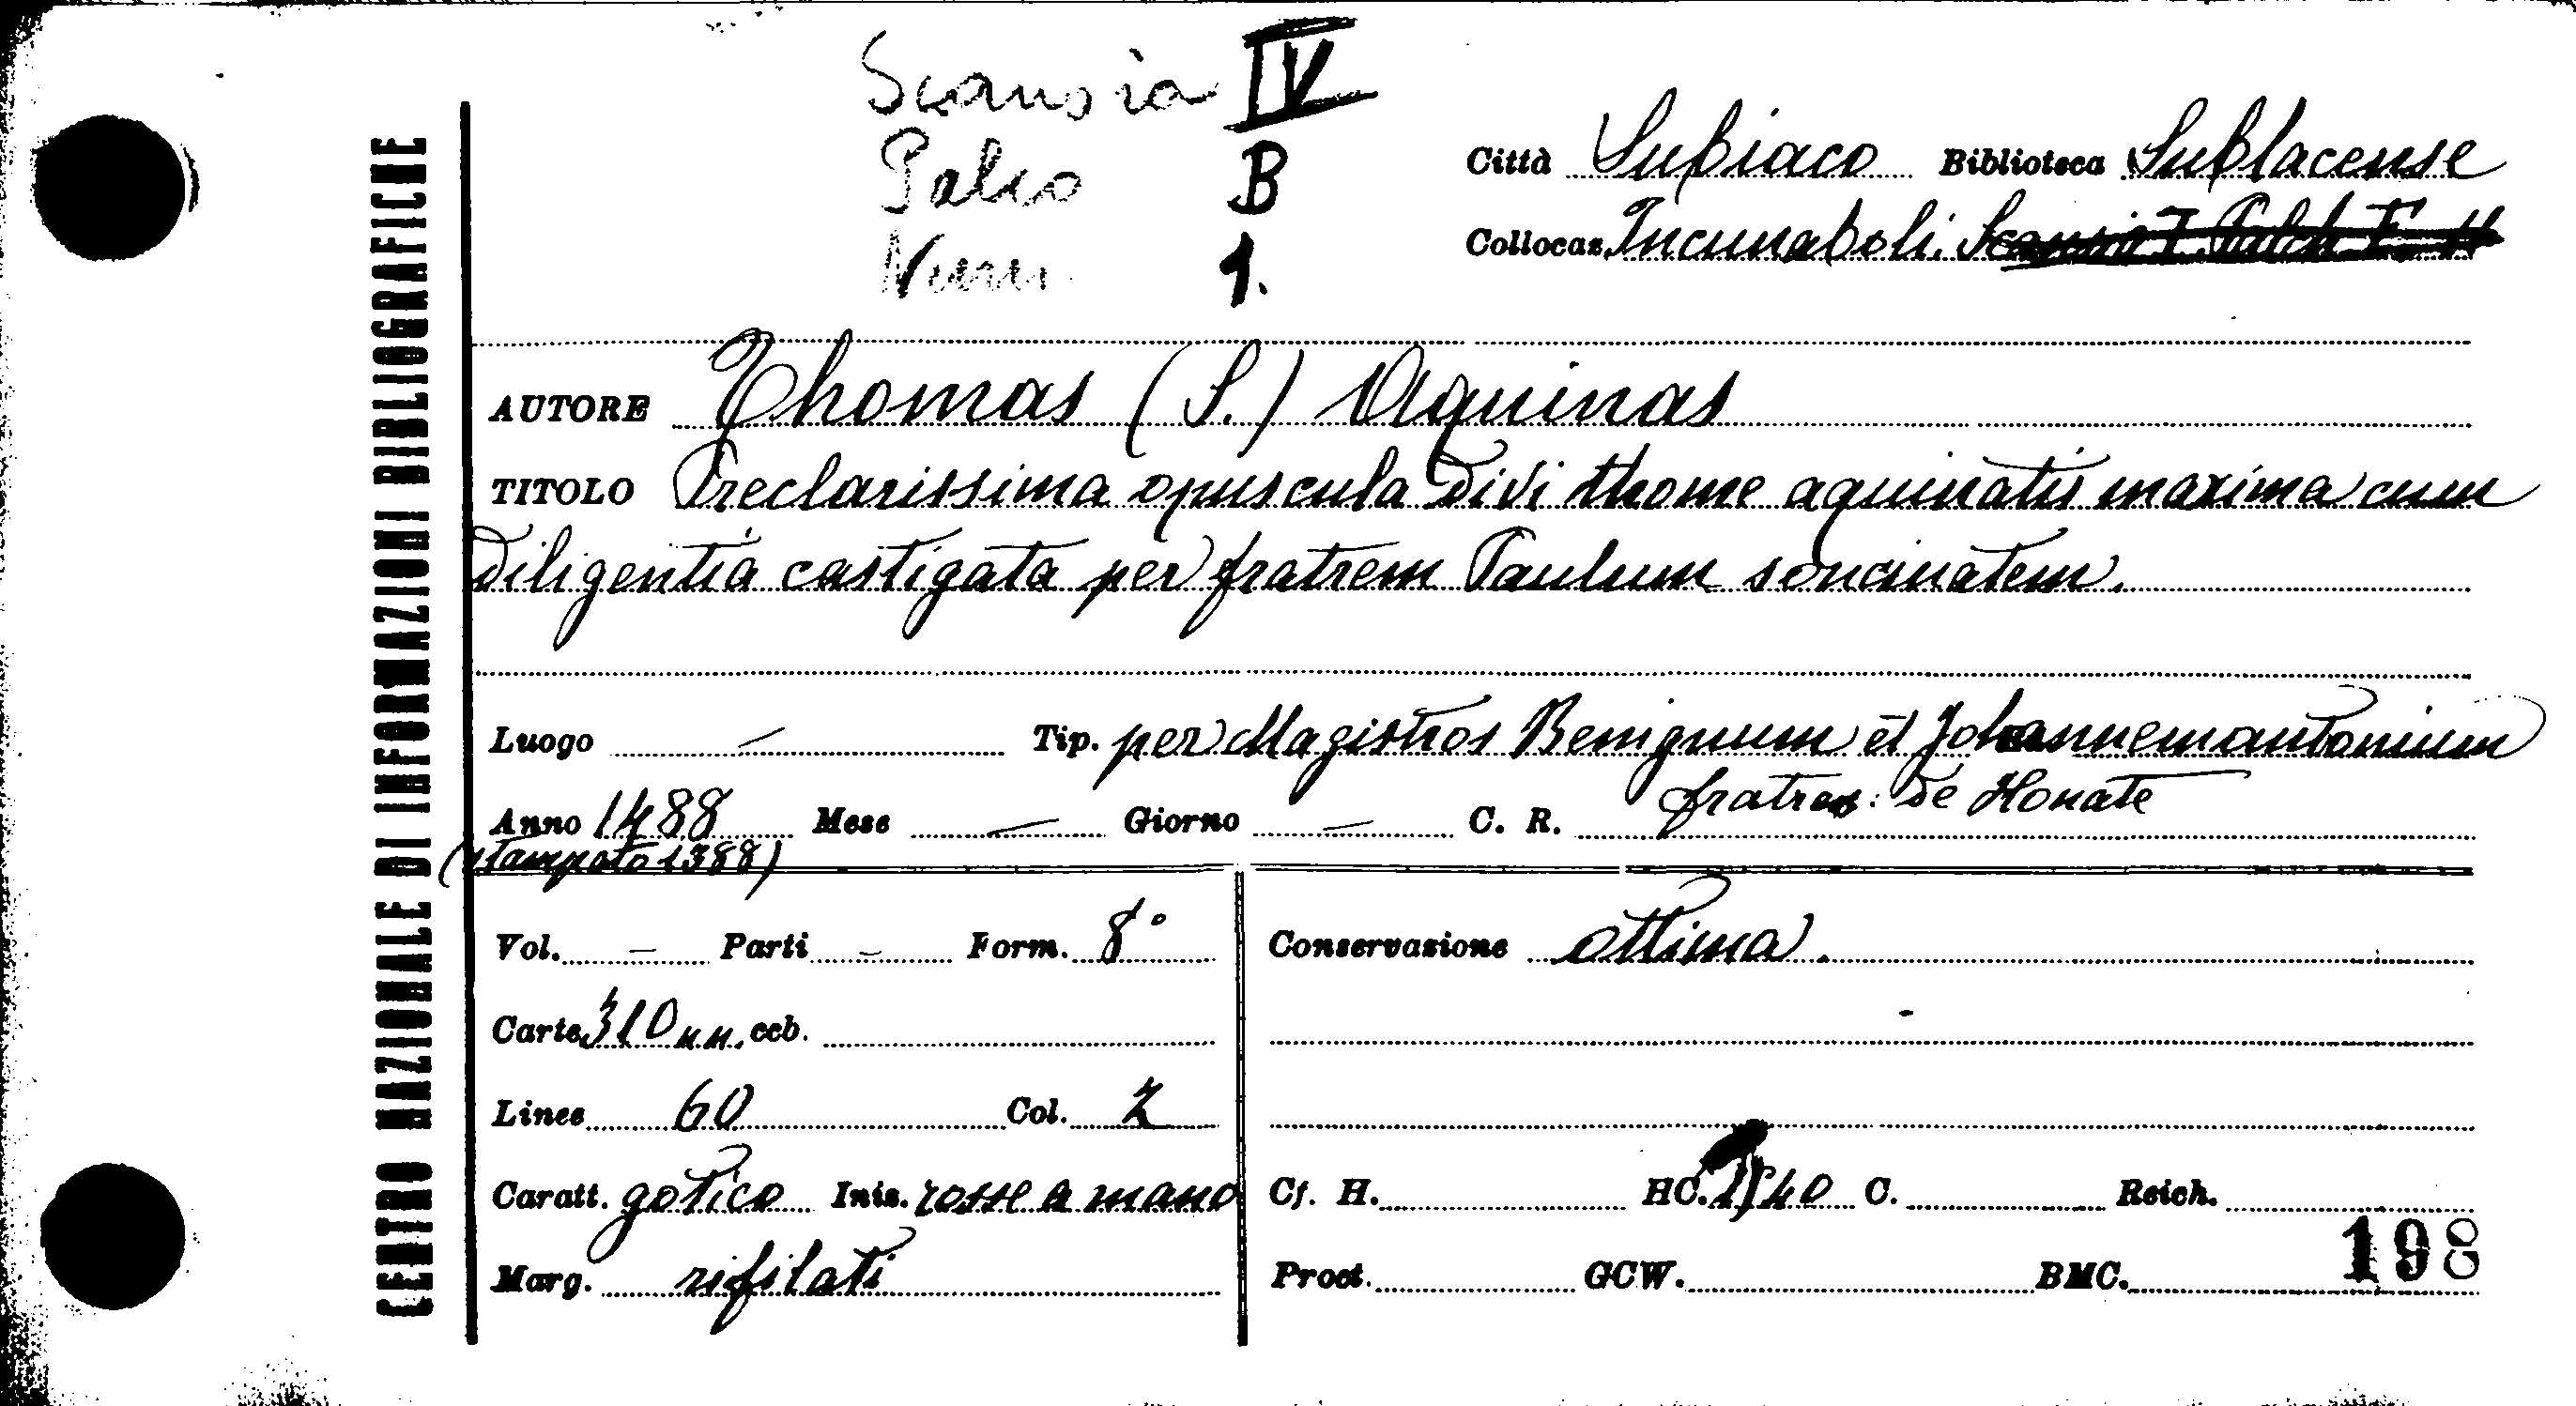 CENTRO NAZIONALE DI INFORMAZIONI BIBLIOGRAFICHE
Scansia IV
Palco B
Num. 1.
Città Subiaco Biblioteca Sublacense
Collocaz. Incunaboli. Scansia I. Palch.
AUTORE Thomas (S.) Aquinas
TITOLO Preclarissima opuscula divi thome aquinatis maxima cum
diligentia castigata per fratrem Paulum soncinatem.
Luogo — Tip. per Magistros Benignum et Johannemantonium
fratres: de Honate
Anno 1488 Mese — Giorno — C. R.
(stampato 1388)
Vol. — Parti — Form. 8° Conservazione ottima.
Carte 310 n.n. ccb.
Linee 60 Col. 2
Caratt. gotico Iniz. rosse a mano Cf. H. HC. 1540 C. Reich.
Marg. rifilati Proct. GCW. BMC.
198